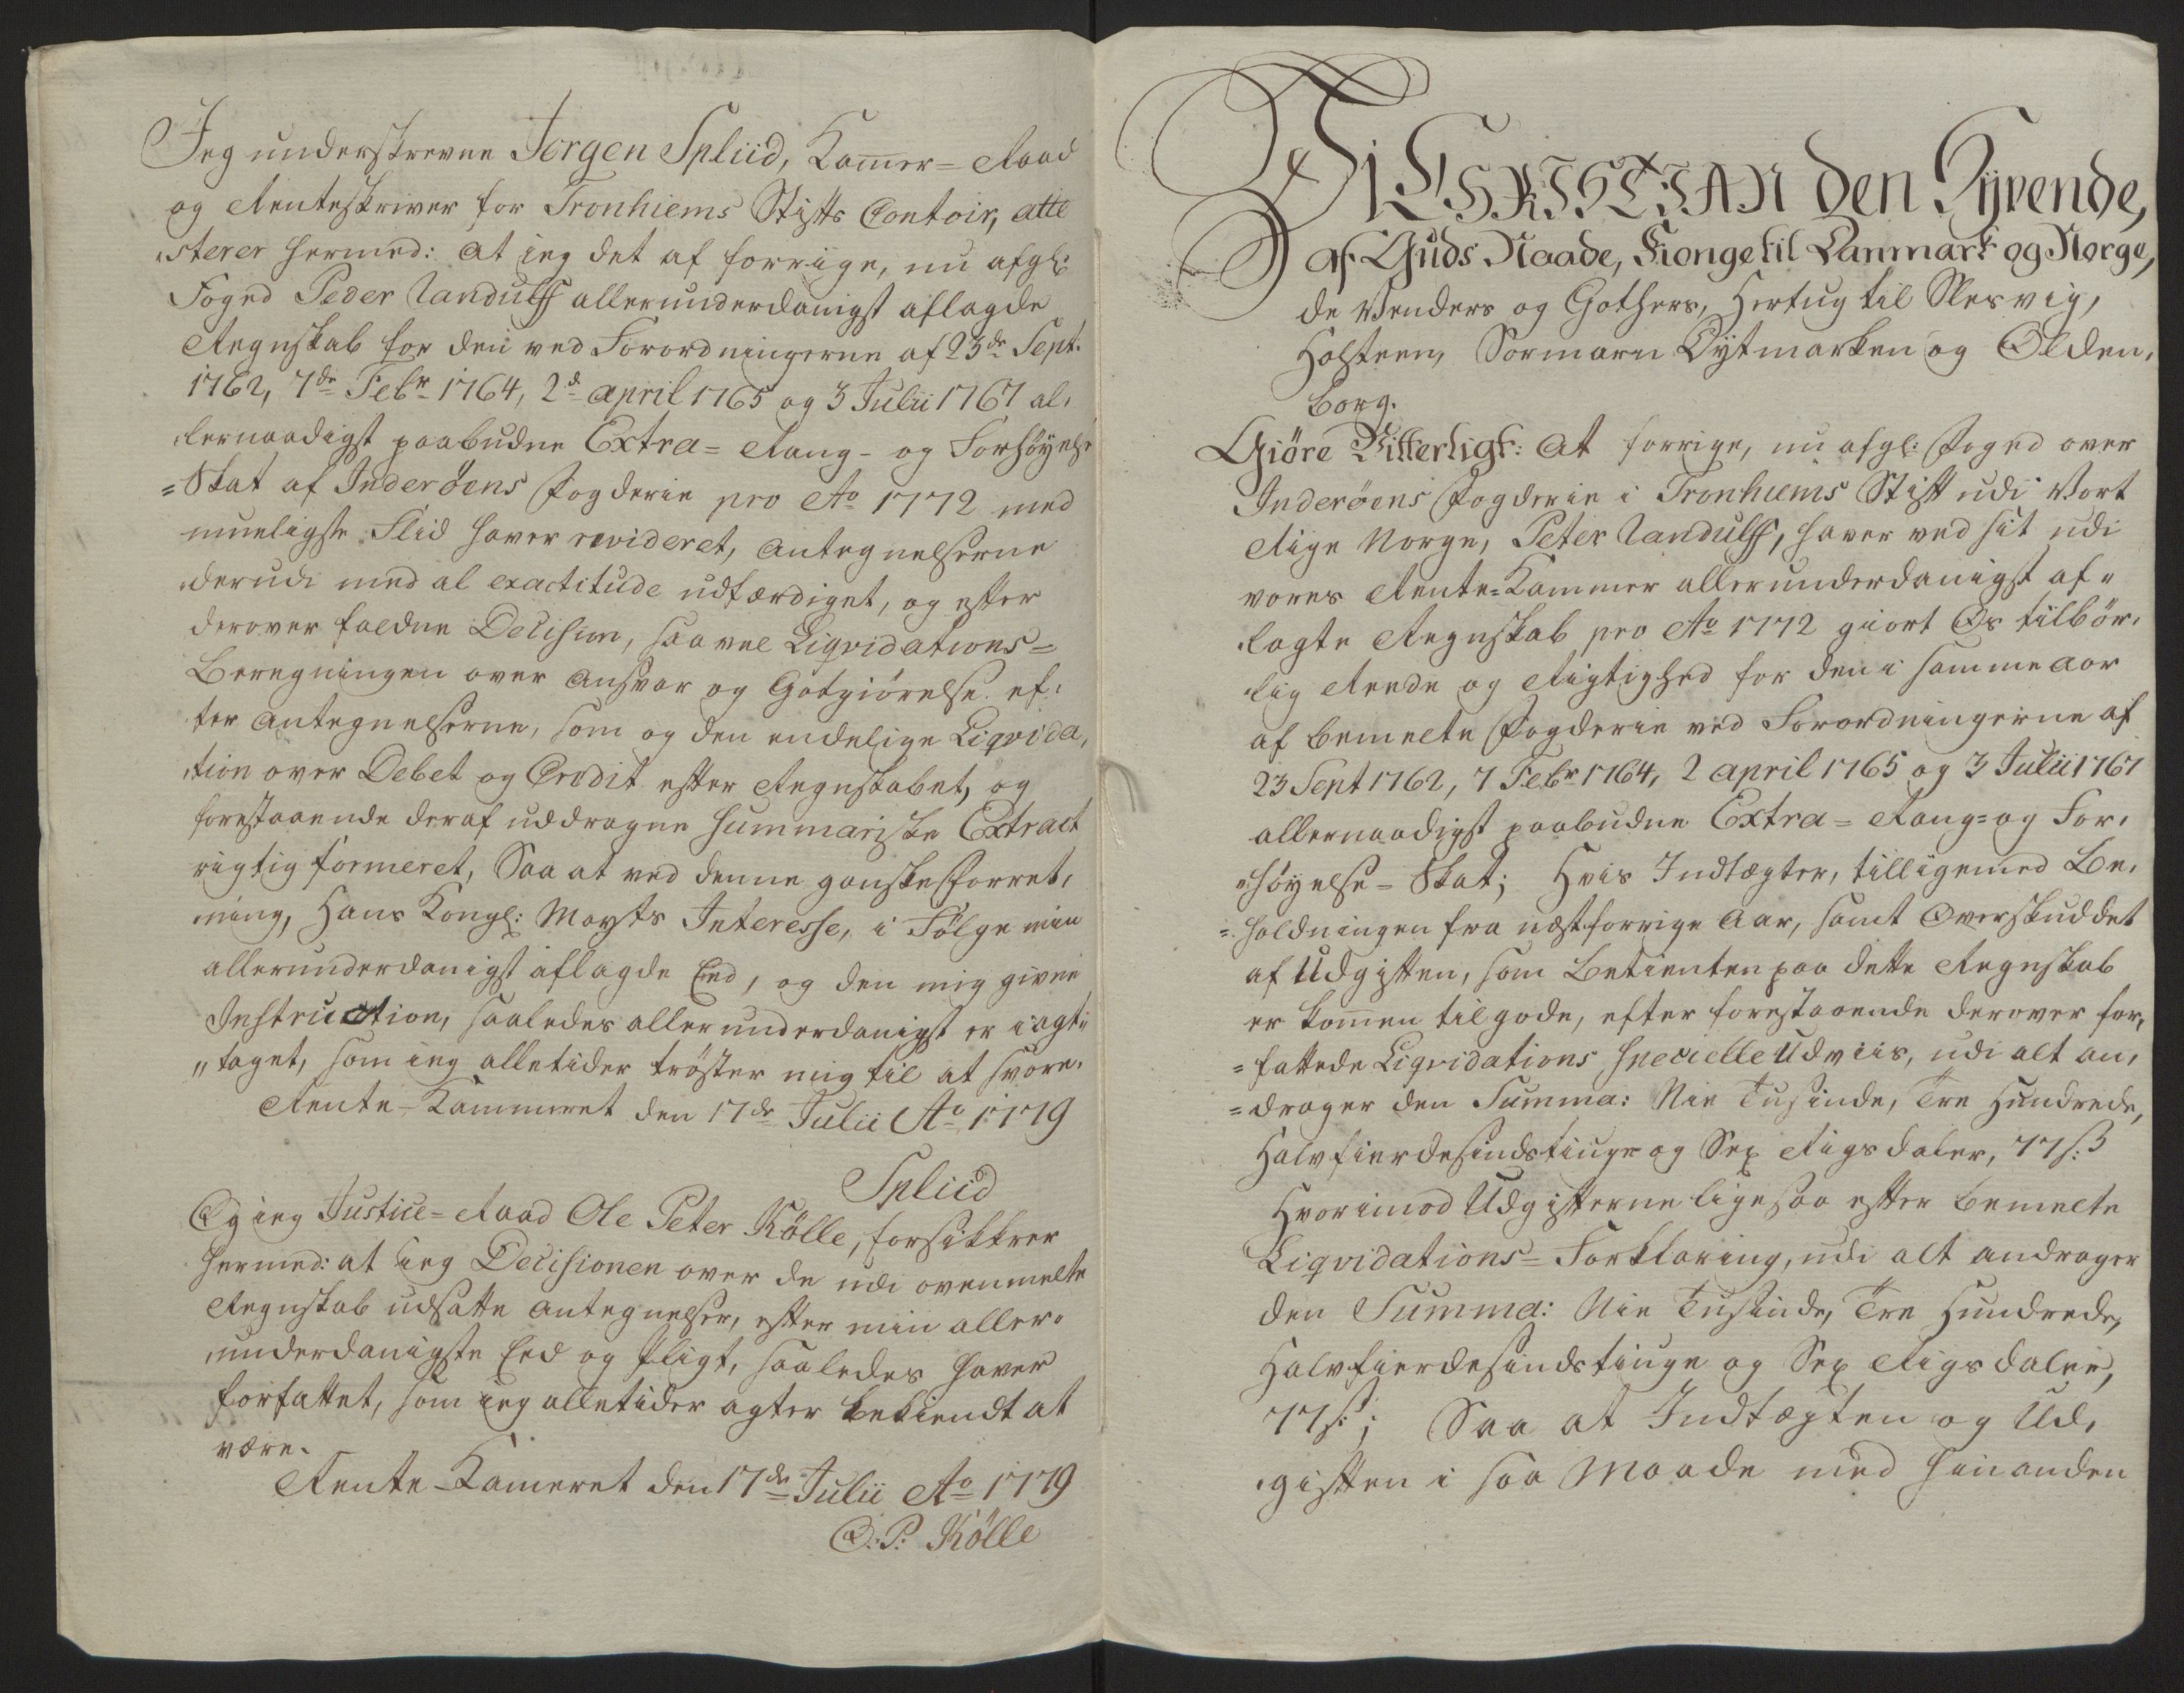 Jeg underskrevne Jørgen Spliid, Kammer-Raad
og Renteskriver for Tronhiems Stifts Contoir, atte
sterer hermed: at jeg det af forrige, nu afgl:
Foged Peder Randulff allerunderdanigst aflagde
Regnskab for den ved Forordningerne af 23de Sept.
1762, 7de Febr 1764, 2d april 1765 og 3 Julii 1767 al,
,lernaadigst paabudne Extra= Rang- og Forhøyelse
=Skat af Inderøens Fogderie pro Ao 1772 med
mueligste Fliid haver revideret, Antegnelserne
derudi med al exactitude udfærdiget, og efter
derover faldne Decision, saavel Liqvidations=
Beregningen over Ansvar og Gotgiørelse ef,
ter Antegnelserne, som og den endelige Liqvida,
,tion over Debet og Credit efter Regnskabet, og
forestaaende deraf uddragne Summariske Extract
rigtig formeret, Saa at ved denne ganske Forret,
,ning, Hans Kongl: Mayts Interesse, i Følge min
allerunderdanigst aflagde Eed, og den mig givne
Instruction, saaledes allerunderdanigst er iagt"
"taget, som jeg alletider trøster mig til at svare.
Rente-Kammeret den 17de Julii Ao 1779
Spliid
Og jeg Justice=Raad Ole Peter Kölle, forsikkrer
hermed: at jeg Decisionen over de udi ovenmelte
Regnskab udsatte Antegnelser, efter min aller"
underdanigste Eed og Pligt, saaledes haver
forfattet, som jeg alletider agter bekiendt at
være.
Rente-Kameret den 17de Julii Ao 1779
O: P: Kölle
Vi CHRISTIAN den Syvende,
af Guds Naade, Konge til Danmark og Norge,
de Venders og Gothers, Hertug til Slesvig,
Holsteen, Stormarn Dytmarken og Olden,
borg.
Giöre Vitterligt: At forrige, nu afgl: Foged over
Inderöens Fogderie i Tronhiems Stift udi Vort
Rige Norge, Peter Randulff, haver ved sit udi
vores Rente=Kammer allerunderdanigst af"
lagte Regnskab pro Ao 1772 giort Os tilbør,
,lig Reede og Rigtighed for den i samme Aar
af bemelte Fogderie ved Forordningerne af
23 Sept 1762, 7 Febr 1764, 2 april 1765 og 3 Julii 1767
allernaadigst paabudne Extra= Rang= og For,
"høyelse= Skat; Hvis Indtægter, tilligemed Be,
=holdningen fra næstforrige Aar, samt Overskuddet
af Udgiften, som Betienten paa dette Regnskab
er kommen tilgode, efter forestaaende derover for,
=fattede Liqvidations Specielle Udviis, udi alt an,
=drager den Summa: Nie Tusinde, Tre Hundrede,
Halvfierdesindstiuge og Sex Rigsdaler, 77 s: ß
Hvorimod Udgifterne ligesaa efter bemelte
Liqvidations= Forklaring, udi alt andrager
den Summa: Nie Tusinde, Tre Hundrede,
Halvfierdesindstiuge og Sex Rigsdaler,
77 s:; Saa at Indtægten og Ud,
,giften i saa Maade med hinanden